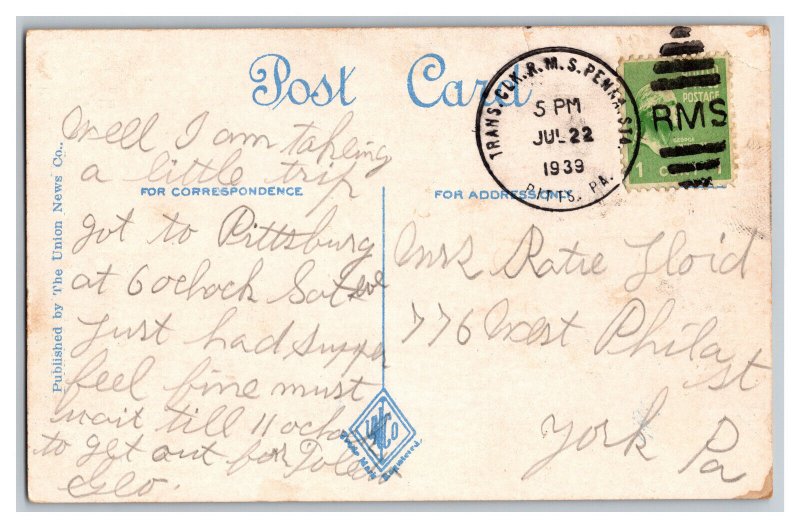 Post Card
TRANS. CLK. R.M.S. PENNA. STA.
5 PM
JUL 22
1939
PITTS, PA.
RMS
POSTAGE
1 CENT 1
Well I am taking
a little trip
FOR CORRESPONDENCE
FOR ADDRESS ONLY
got to Pittsburg
at 6 ochock Sat eve
Just had supper
feel fine must
wait till 11 ochock
to get out for Toledo
Geo.
Mrs Katie Floid
776 West Phila st
York Pa
Published by The Union News Co..
Trade Mark Registered.